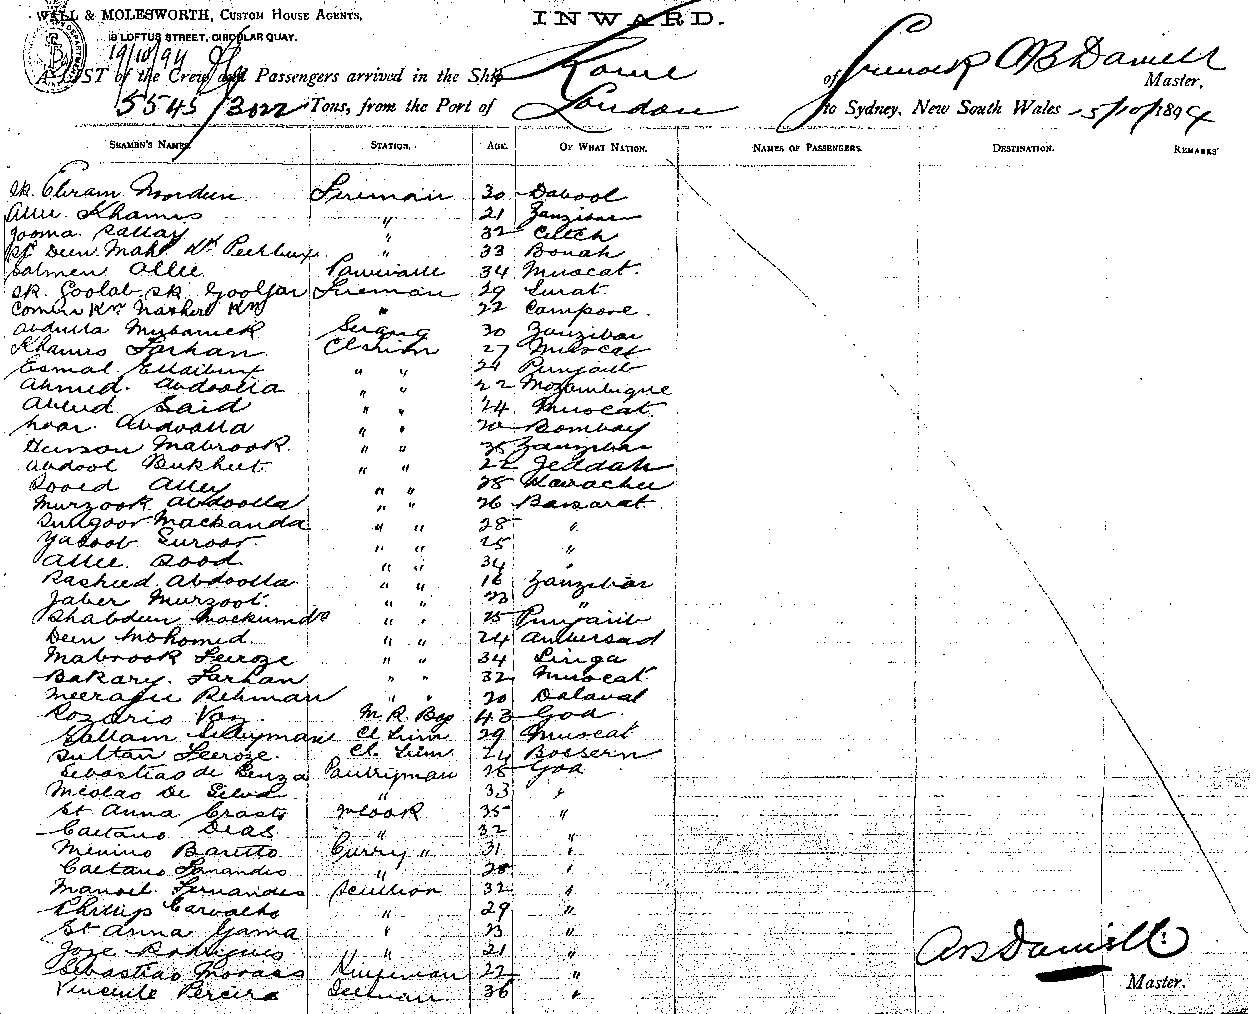 WALL & MOLESWORTH, CUSTOM HOUSE AGENTS,
INWARD.
19 LOFTUS STREET, CIRCULAR QUAY.
19/10/94
A LIST of the Crew and Passengers arrived in the Ship Rome of Greenock AB Daniell Master,
5545 / Tons, from the Port of London to Sydney, New South Wales 15/10/1894
SEAMEN'S NAMES. STATION. AGE. OF WHAT NATION. NAMES OF PASSENGERS. DESTINATION. REMARKS
Sk. Ebram Noordeen Fireman 30 Dabool
Allie Khamis " 21 Zanzibar
Jooma Sallay " 32 Cutch
Deen Mah " 33
Salmen Allee 34 Muscat.
Sk. Goolab Sk. Goolfar Fireman 29 Surat.
" 22 Campore.
Abdulla Mubarrick Serang 30 Zanzibar
Khamis Farhan 27 Muscat
Esmal " " 21 Punjaub
Ahmed. Abdoolla " " 22 Mozambique
Abeud Said " " 24 Muscat.
Abdoolla " " 20 Bombay
Mabrook. " " 35 Zanzibar
Abdool Bukheet " " 22 Jeddah
Alley " " 28
Murzook Abdoolla " " 26 Bassarat.
Sungoor Mackanda " " 28 "
Yacoob Suroor. " " 25 "
Allee Dood " " 34
Rasheed Abdoolla " " 16 Zanzibar
Jaber Murzook. " " 23 "
Shabdeen " " 25 Punjaub
Deen Mohomed " " 24
Mabrook Feeroze " " 34 Linga
Bakary. Farhan " " 32 Muscat
Rehman " " 20
Rozario Vaz. M. R. Boy 43 Goa.
Sallam Sulleyman 29 Muscat
Sultan Feeroze. 24
Sebastiao de Penza Pantryman 28 Goa
Nicolas De Silva " 33 "
St Anna Crasto 35 "
Caetano Dias " 32 "
Menino Baretto Curry " 31 "
Caetano Fanandis " 28 "
Manoel Fernandes Scullion 32 "
Phillip Carvalho " 29 "
St Anna Gama " 23 "
Joze Rodrigues " 21 "
Sebastiao Moraes 22 "
Vincente Pereira 36 "
AB Daniell
Master.